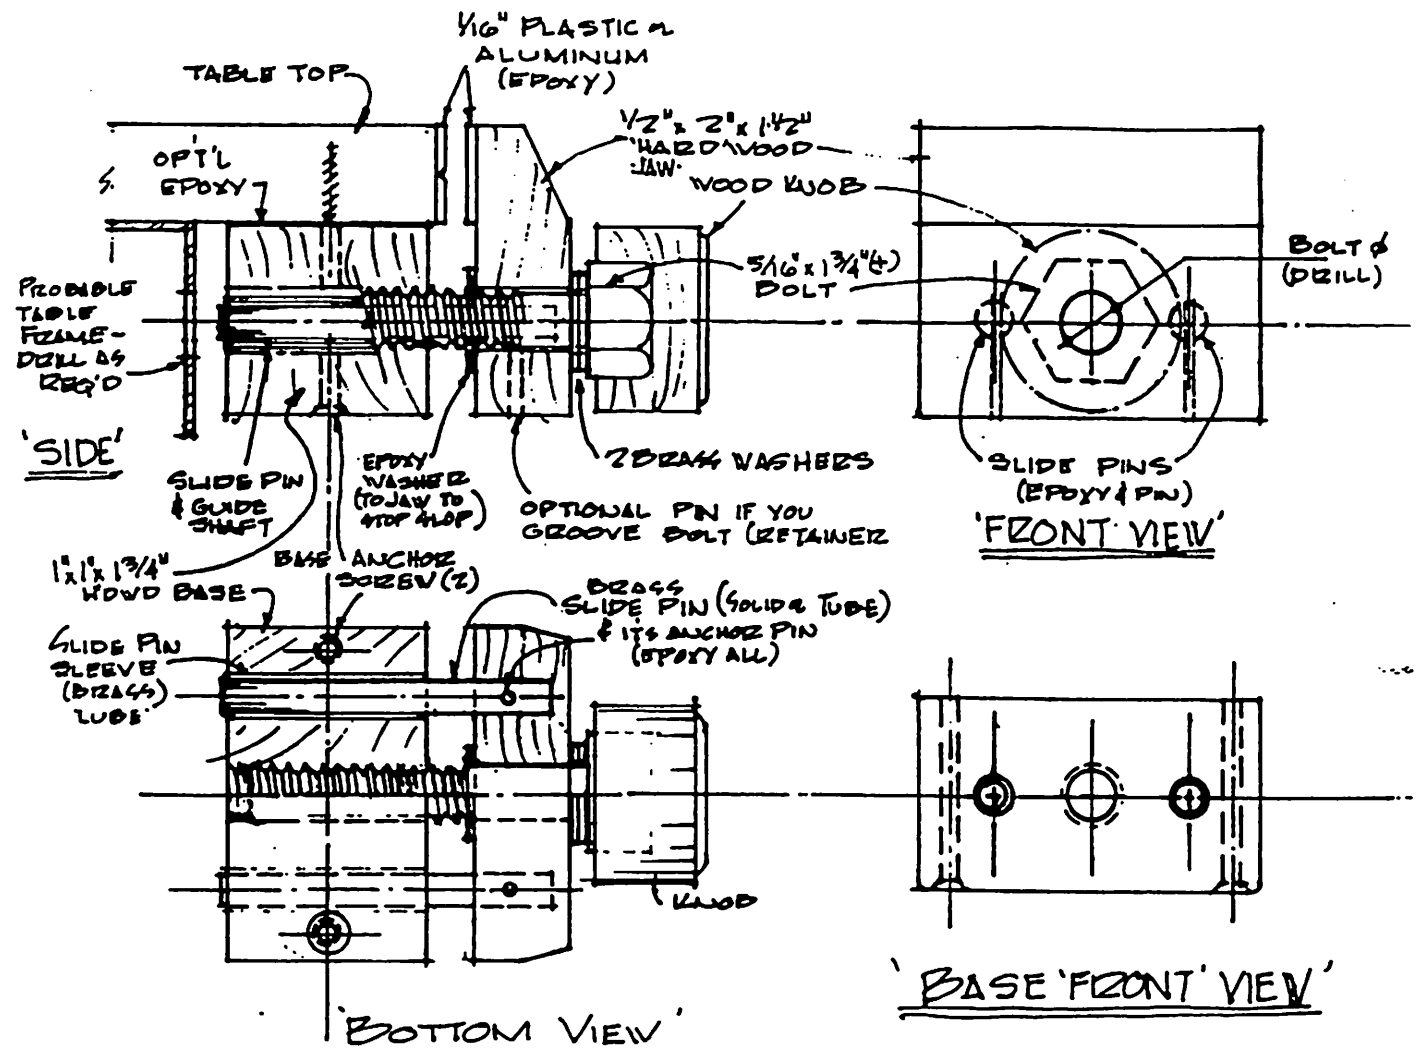 1/16" PLASTIC or
ALUMINUM
(EPOXY)
TABLE TOP
1/2" x 2" x 1 1/2"
HARDWOOD
JAW
OPT'L
EPOXY
WOOD KNOB
5/16" x 1 3/4" (+)
BOLT
BOLT ϕ
(DRILL)
PROBABLE
TABLE
FRAME -
DRILL AS
REQ'D
'SIDE'
SLIDE PIN
& GUIDE
SHAFT
EPOXY
WASHER
(TO JAW TO
STOP SLOP)
2 BRASS WASHERS
OPTIONAL PIN IF YOU
GROOVE BOLT (RETAINER
SLIDE PINS
(EPOXY & PIN)
'FRONT VIEW'
1" x 1" x 1 3/4"
WOWD BASE
BASE ANCHOR
SCREW (2)
BRASS
SLIDE PIN (SOLID or TUBE)
& IT'S ANCHOR PIN
(EPOXY ALL)
SLIDE PIN
SLEEVE
(BRASS)
TUBE
KNOB
'BOTTOM VIEW'
'BASE 'FRONT' VIEW'